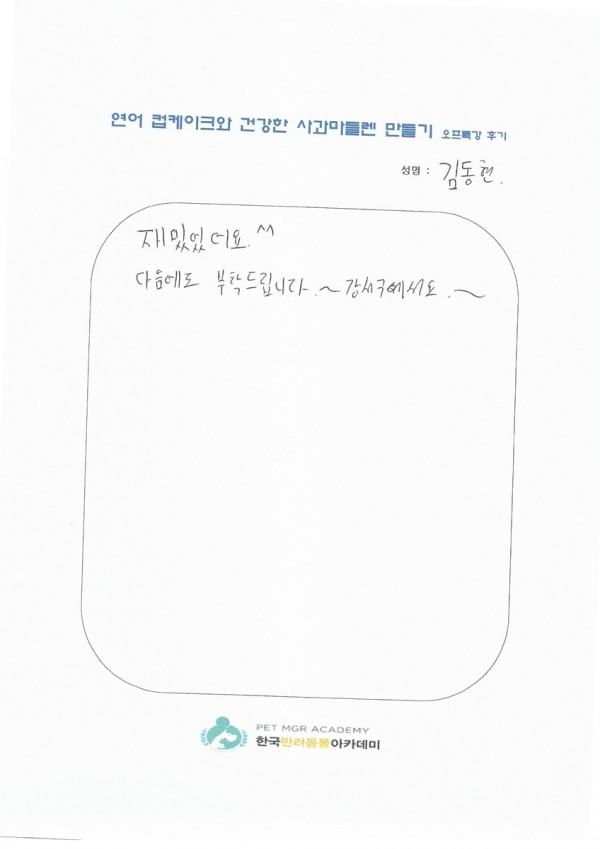 연어 컵케이크와 건강한 사과마들렌 만들기 오프특강 후기
성명 : 김동현.
재밌었어요.^^
다음에도 부탁드립니다.~
PET MGR ACADEMY
한국반려동물아카데미